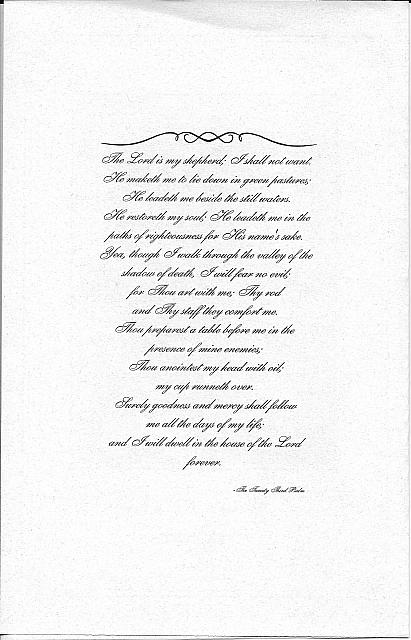 The Lord is my shepherd; I shall not want.
He maketh me to lie down in green pastures;
He leadeth me beside the still waters.
He restoreth my soul; He leadeth me in the
paths of righteousness for His name's sake.
Yea, though I walk through the valley of the
shadow of death, I will fear no evil;
for Thou art with me; Thy rod
and Thy staff they comfort me.
Thou preparest a table before me in the
presence of mine enemies;
Thou anointest my head with oil;
my cup runneth over.
Surely goodness and mercy shall follow
me all the days of my life;
and I will dwell in the house of the Lord
forever.
-The Twenty Third Psalm